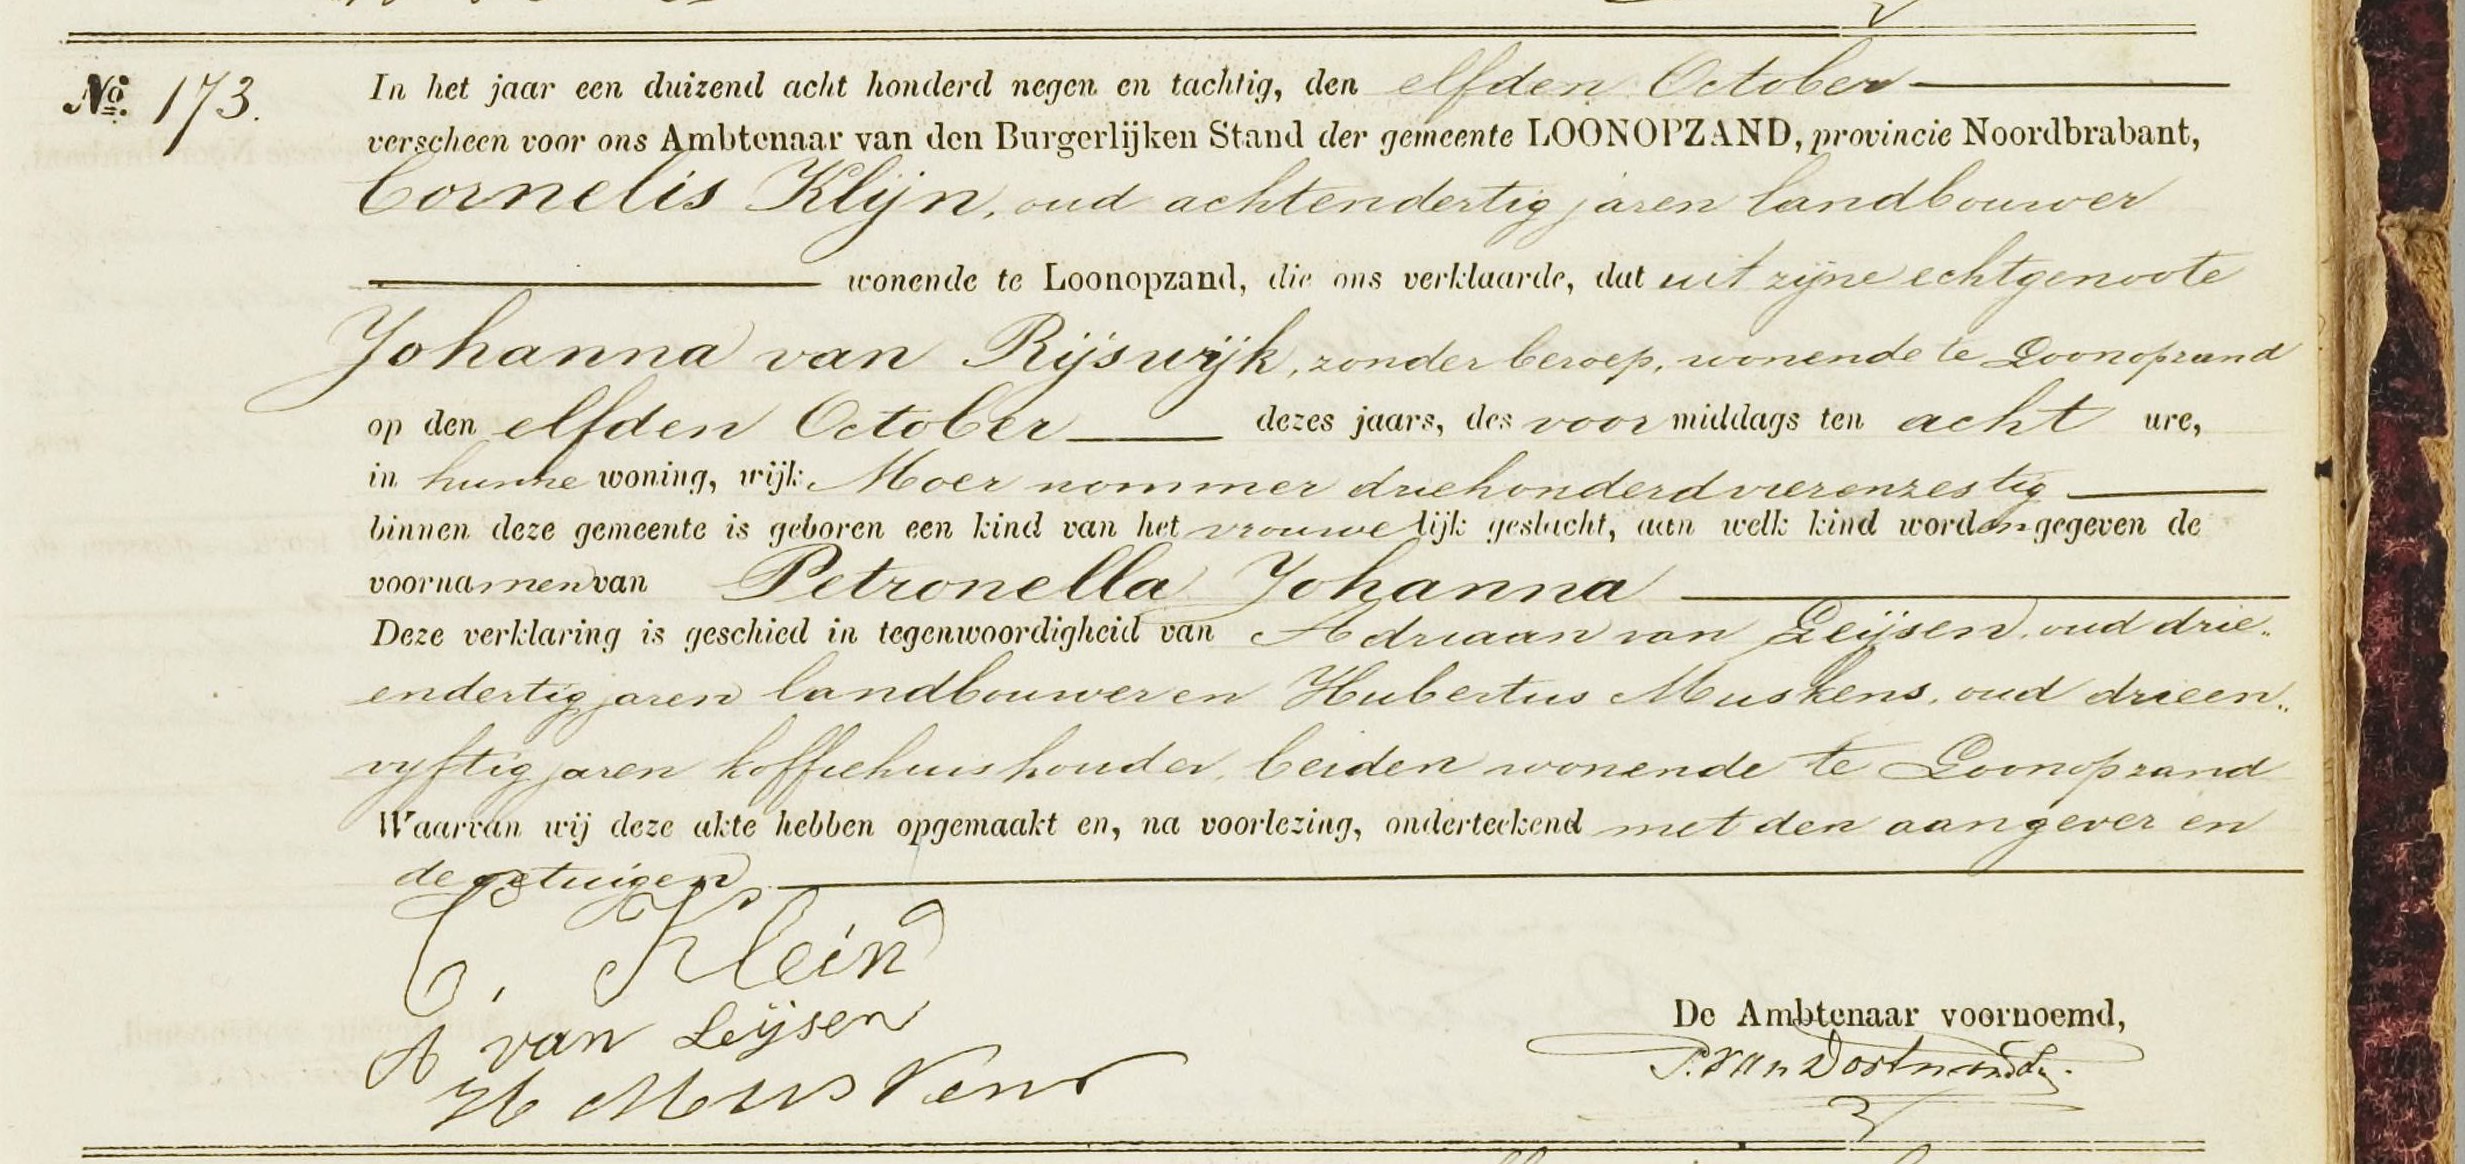 No. 173. In het jaar een duizend acht honderd negen en tachtig, den elfden October
verscheen voor ons Ambtenaar van den Burgerlijken Stand der gemeente LOONOPZAND, provincie Noordbrabant,
Cornelis Klijn, oud achtendertig jaren landbouwer
wonende te Loonopzand, die ons verklaarde, dat uit zijne echtgenoote
Johanna van Rijswijk, zonder beroep, wonende te Loonopzand
op den elfden October dezes jaars, des voor middags ten acht ure,
in hunne woning, wijk Moer nommer driehonderdvierenzestig
binnen deze gemeente is geboren een kind van het vrouwelijk geslacht, aan welk kind worden gegeven de
voornamen van Petronella Johanna
Deze verklaring is geschied in tegenwoordigheid van Adriaan van Leijsen, oud drie„
endertig jaren landbouwer en Hubertus Muskens, oud drieen„
vyftig jaren koffiehuishouder, beiden wonende te Loonopzand
Waarvan wij deze akte hebben opgemaakt en, na voorlezing, onderteekend met den aangever en
de getuigen
C. Klein
A van Leijsen
De Ambtenaar voornoemd,
H Muskens